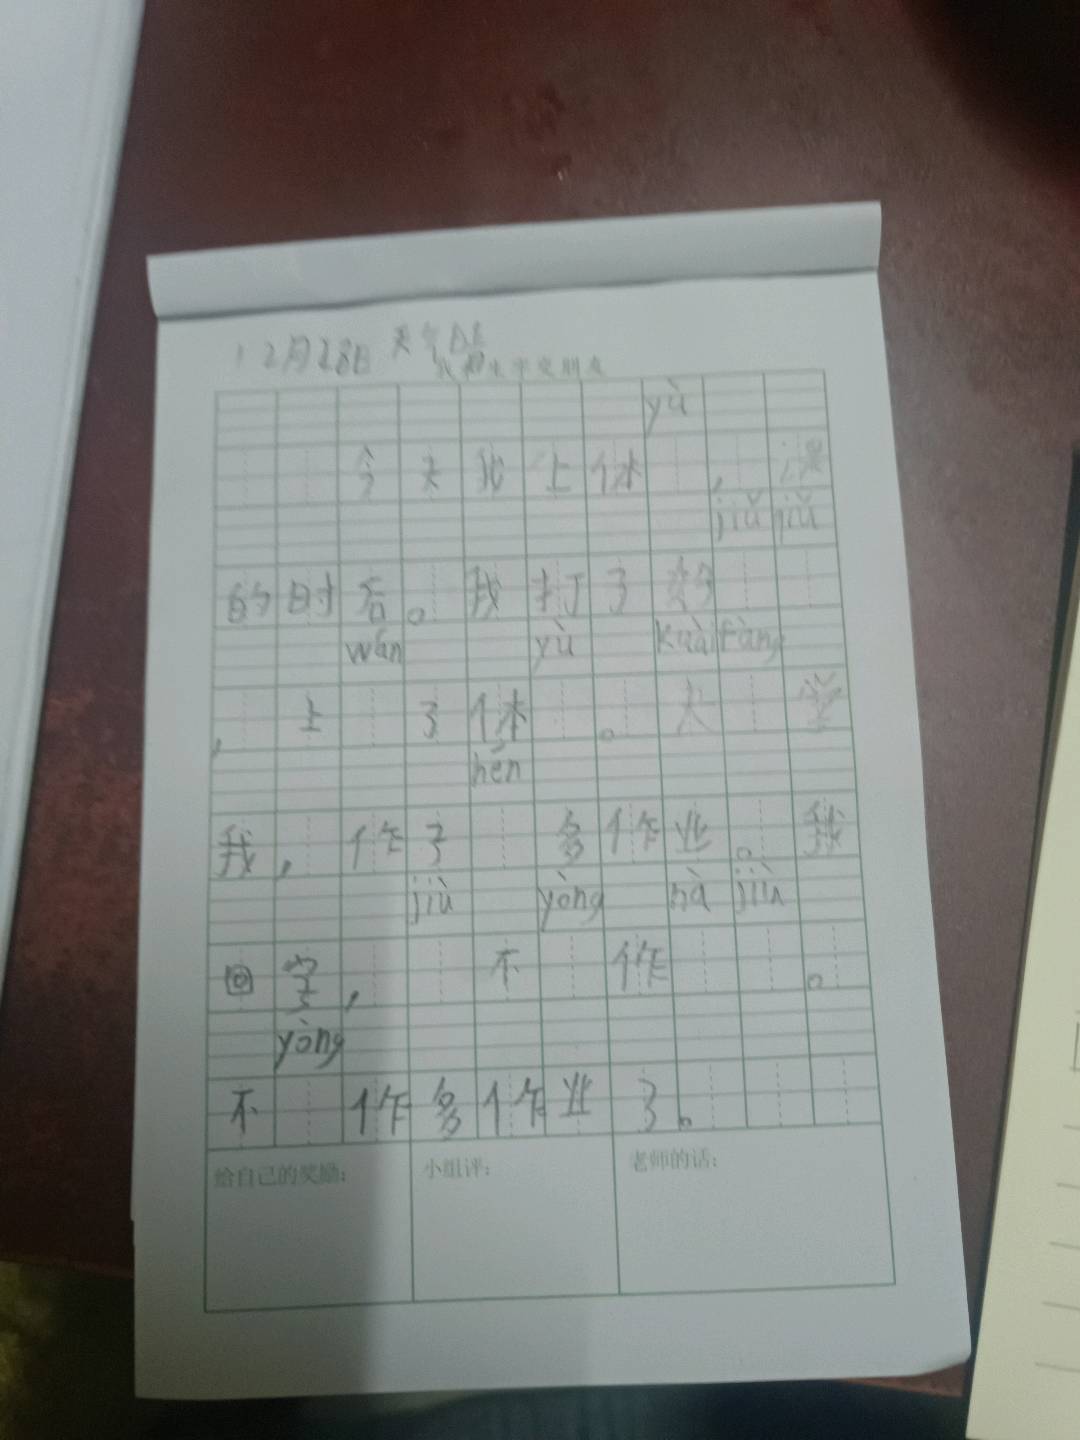 12月28日 天气
生字交朋友
yù
今天我上体,课
jiǔ jiǔ
的时后。我打了好
wǎn yù kuài fàng
,上了体。大学
hěn
我,作了多作业。我
jiù yòng nà jiù
回学,不作。
yòng
不作多作业了。
给自己的奖励: 小组评: 老师的话: